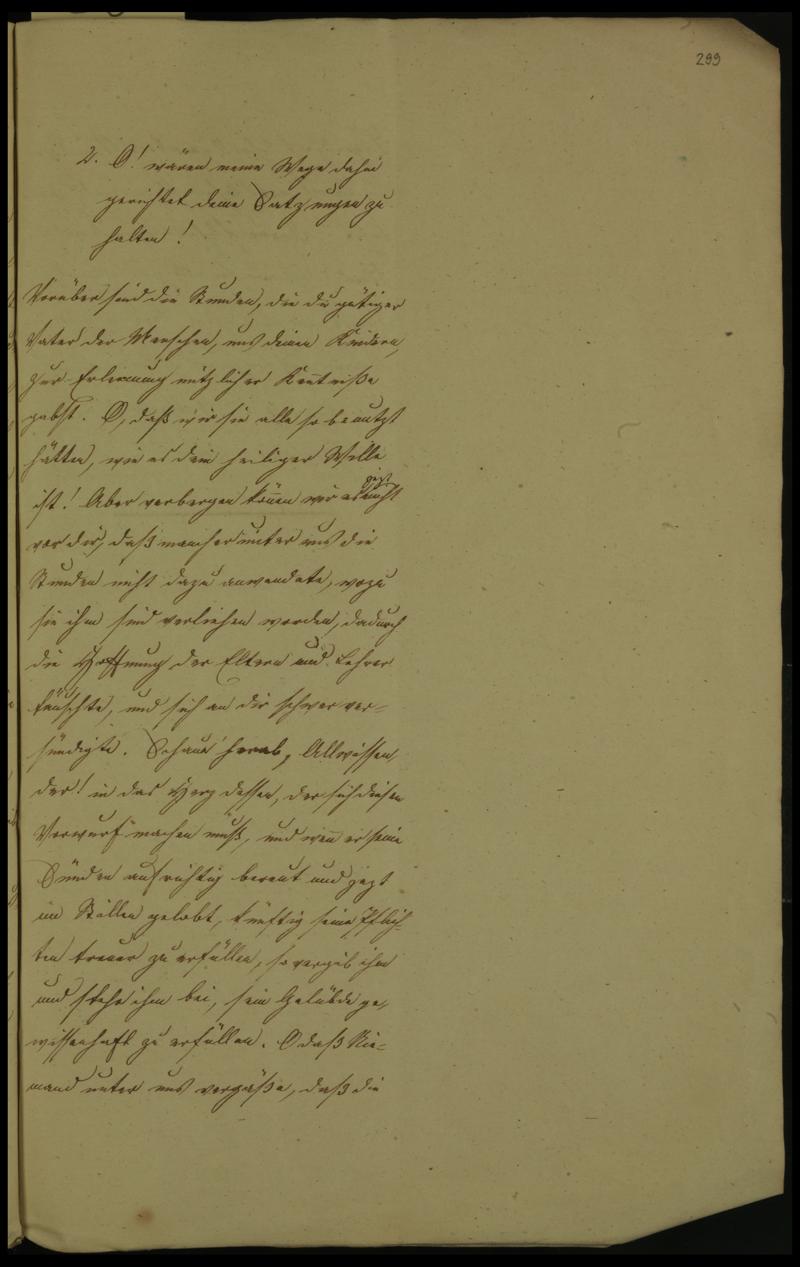 299
2. O! wären meine Wege dahin
gerichtet deine Satzungen zu
halten!
Vorüber sind die Stunden, die du gütiger
Vater der Menschen, uns deinen Kindern,
zur Erlernung nützlicher Kentniße
gabst. O, daß wir sie alle so benutzt
hätten, wie es dein heiliger Wille
ist! Aber verbergen könen wir es nicht
vor dir, daß mancher unter uns die
Stunden nicht dazu anwendete, wozu
sie ihm sind verliehen worden, dadurch
die Hoffnung der Eltern und Lehrer
täuschte, und sich an dir schwer ver-
sündigte. Schaue herab, Allwissen
der! in das Herz dessen, der sich diesen
Vorwurf machen muß, und wen er seine
Sünden aufrichtig bereut und jezt
im Stillen gelobt, künftig seine Pflich-
ten treuer zu erfüllen, so vergib ihm
und stehe ihm bei, sein Gelübde ge-
wissenhaft zu erfüllen. O daß Nie-
mand unter uns vergäße, daß die